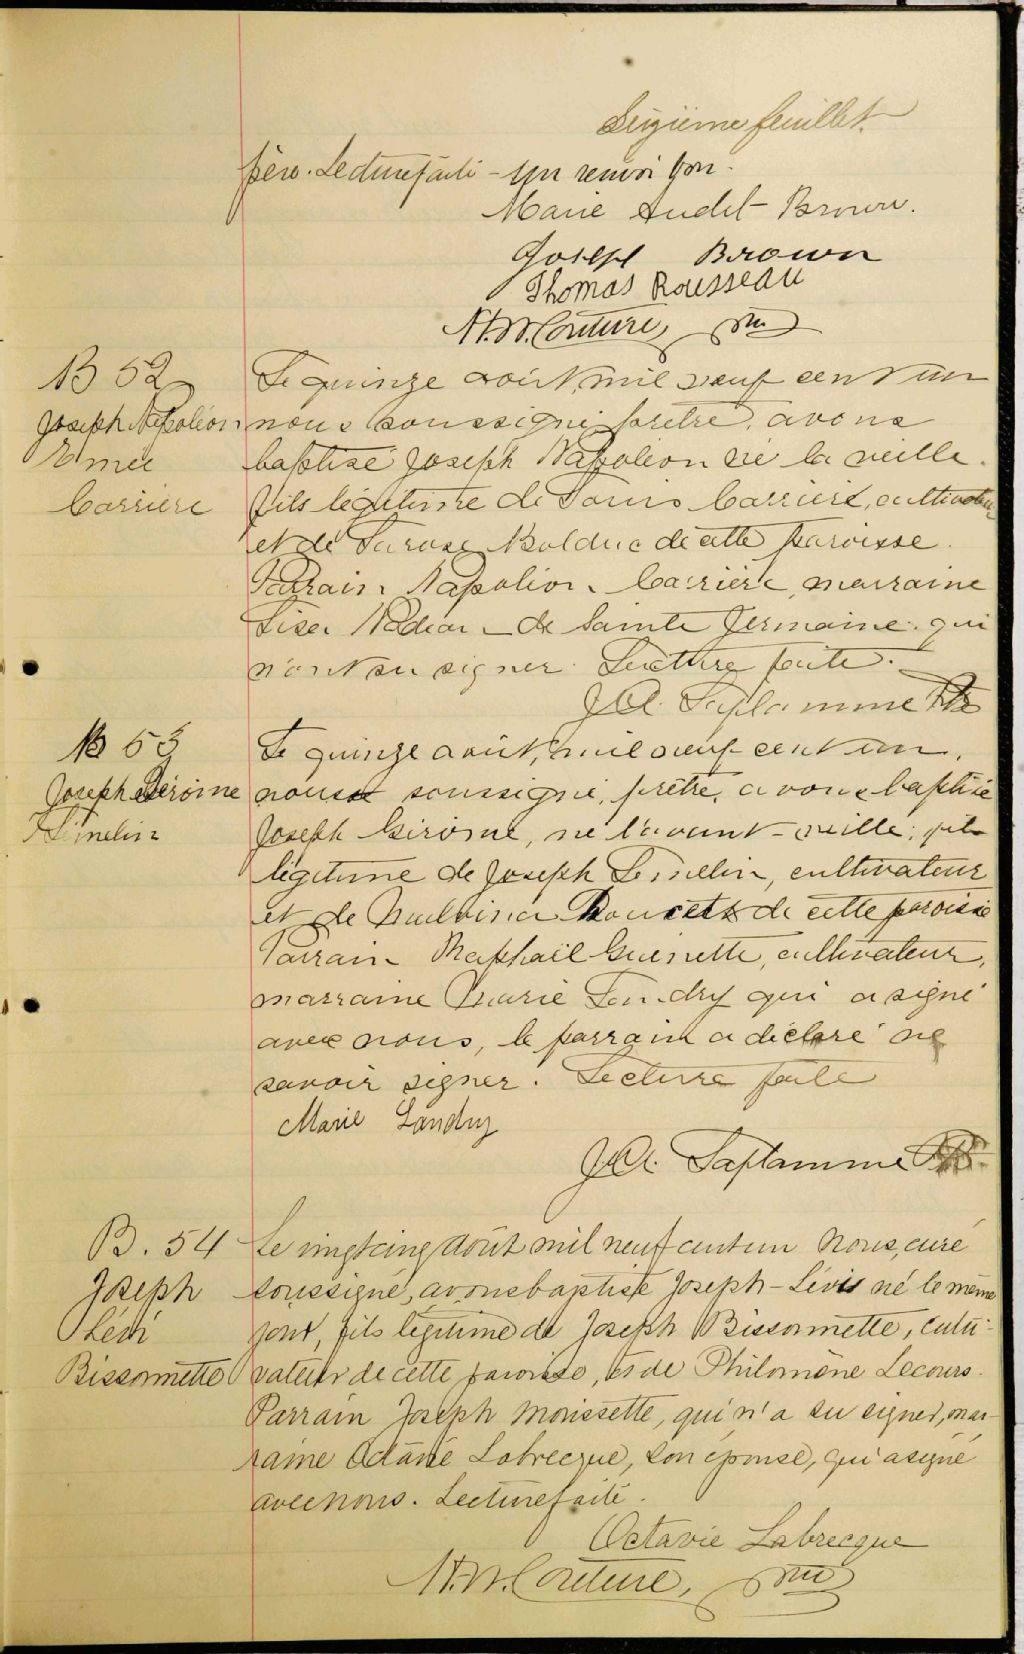 Seizième feuillet.
père. Lecture faite - un renvoi bon.
Marie Audet-Brown.
Joseph Brown
Thomas Rousseau
H.N. Couture, ptre
B 52
Joseph Napoléon
Carrière
Le quinze août, mil neuf cent un
nous soussigné prêtre, avons
baptisé Joseph Napoléon né la veille.
fils légitime de Louis Carrière, cultivateur
et de Larose Bolduc de cette paroisse.
Parrain Napoléon Carrière, marraine
Lise Nadeau de Sainte Germaine qui
n'ont su signer. Lecture faite.
J.A. Laflamme Ptre
B 53
Joseph Gérome
Lemelin
Le quinze août, mil neuf cent un,
nous soussigné, prêtre, avons baptisé
Joseph Gérome, né l'avant-veille, fils
légitime de Joseph Lemelin, cultivateur
et de Malvina Doucet de cette paroisse
Parrain Raphaël Guenette, cultivateur,
marraine Marie Landry qui a signé
avec nous, le parrain a déclaré ne
savoir signer. Lecture faite
Marie Landry
J.A. Laflamme Ptre.
B. 54
Joseph
Lévi
Bissonnette
Le vingt cinq août mil neuf cent un Nous, curé
soussigné, avons baptisé Joseph-Lévis né le même
jour, fils légitime de Joseph Bissonnette, culti-
vateur de cette paroisse, et de Philomène Lecours.
Parrain Joseph Morissette, qui n'a su signer, mar-
raine Octavie Labrecque, son épouse, qui a signé
avec nous. Lecture faite.
Octavie Labrecque
H.N. Couture, ptre